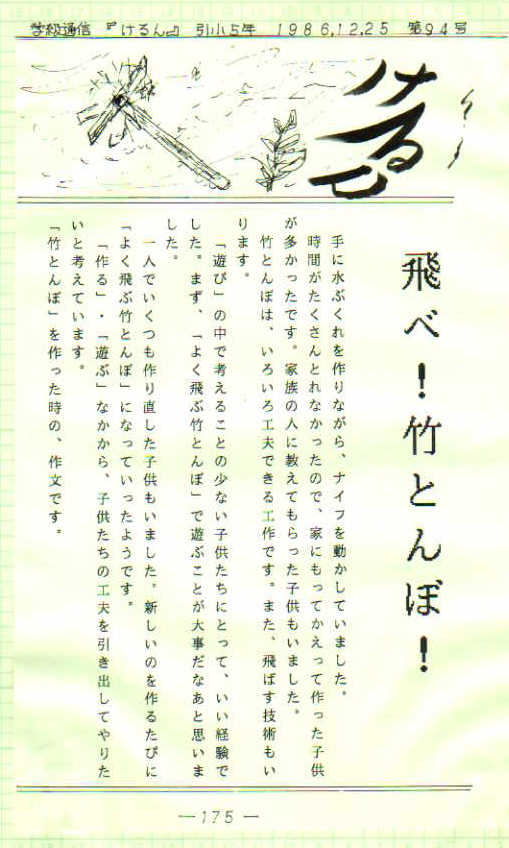 学級通信 『けるん』 引小5年 1986,12,25 第94号
けるん
飛べ!竹とんぼ!
手に水ぶくれを作りながら、ナイフを動かしていました。
時間がたくさんとれなかったので、家にもってかえって作った子供
が多かったです。家族の人に教えてもらった子供もいました。
竹とんぼは、いろいろ工夫できる工作です。また、飛ばす技術もい
ります。
「遊び」の中で考えることの少ない子供たちにとって、いい経験で
した。まず、「よく飛ぶ竹とんぼ」で遊ぶことが大事だなあと思いま
した。
一人でいくつも作り直した子供もいました。新しいのを作るたびに
「よく飛ぶ竹とんぼ」になっていったようです。
「作る」・「遊ぶ」なかから、子供たちの工夫を引き出してやりた
いと考えています。
「竹とんぼ」を作った時の、作文です。
—175—